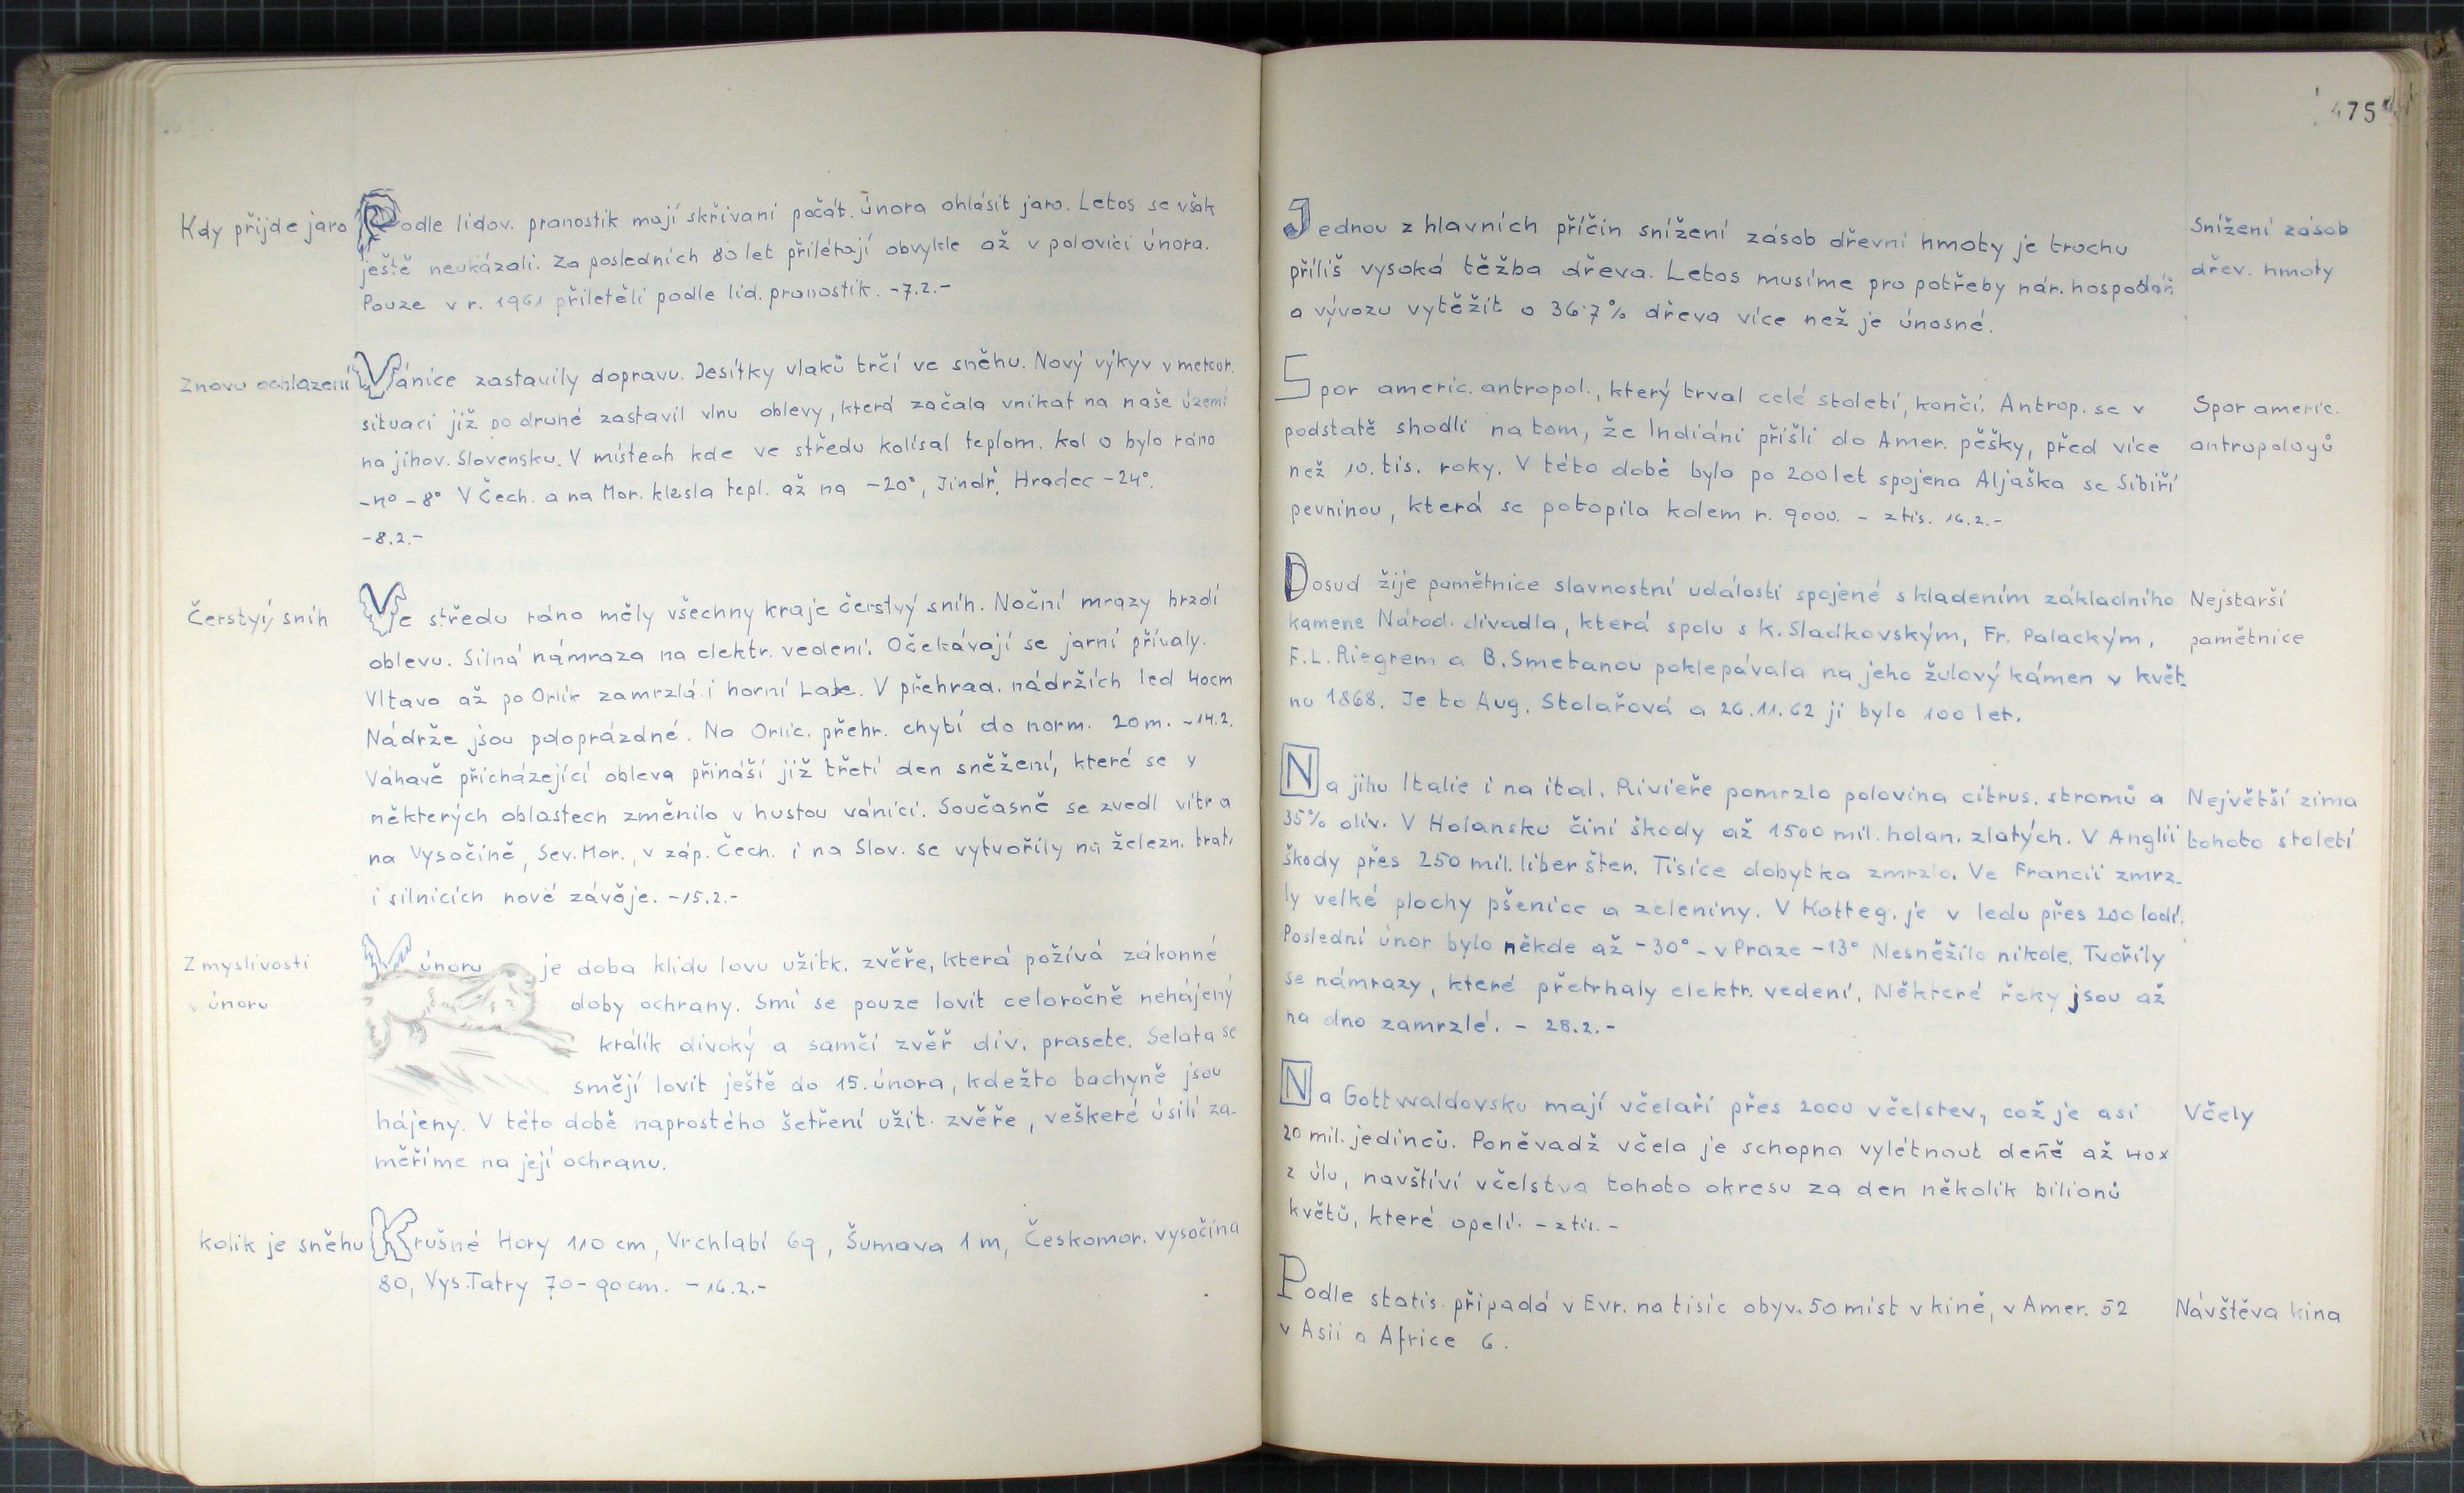 Kdy přijde jaro
Podle lidov. pranostik mají skřivani počát. února ohlásit jaro. Letos se však
ještě neukázali. Za posledních 80 let přilétají obvykle až v polovici února.
Pouze v r. 1961 přiletěli podle lid. pranostik. -7.2.-
Znovu ochlazení
Vánice zastavily dopravu. Desítky vlaků trčí ve sněhu. Nový výkyv v meteor.
situaci již po druhé zastavil vlnu oblevy, která začala vnikat na naše území
na jihov. Slovensku. V místech kde ve středu kolísal teplom. kol 0 bylo ráno
-4° -8° V Čech. a na Mor. klesla tepl. až na -20°, Jindř. Hradec -24°.
-8.2.-
Čerstvý sníh
Ve středu ráno měly všechny kraje čerstvý sníh. Noční mrazy brzdí
oblevu. Silná námraza na elektr. vedení. Očekávají se jarní přívaly.
Vltava až po Orlík zamrzlá i horní Labe. V přehrad. nádržích led 40cm
Nádrže jsou poloprázdné. Na Orlic. přehr. chybí do norm. 20m. -14.2.
Váhavě přicházející obleva přináší již třetí den sněžení, které se v
některých oblastech změnilo v hustou vánici. Současně se zvedl vítr a
na Vysočině, Sev. Mor., v záp. Čech. i na Slov. se vytvořily na železn. trati
i silnicích nové závěje. -15.2.-
Z myslivosti
v únoru
V únoru je doba klidu lovu užitk. zvěře, která požívá zákonné
doby ochrany. Smí se pouze lovit celoročně nehájený
králík divoký a samčí zvěř div. prasete. Selata se
smějí lovit ještě do 15. února, kdežto bachyně jsou
hájeny. V této době naprostého šetření užit. zvěře, veškeré úsilí za-
měříme na její ochranu.
Kolik je sněhu
Krušné Hory 110 cm, Vrchlabí 69, Šumava 1 m, Českomor. vysočina
80, Vys. Tatry 70-90cm. -16.2.-
475
Jednou z hlavních příčin snížení zásob dřevní hmoty je trochu
příliš vysoká těžba dřeva. Letos musíme pro potřeby nár. hospodář.
a vývozu vytěžit o 36·7% dřeva více než je únosné.
Snížení zásob
dřev. hmoty
Spor americ. antropol., který trval celé století, končí. Antrop. se v
podstatě shodli na tom, že Indiáni přišli do Amer. pěšky, před více
než 10. tis. roky. V této době bylo po 200 let spojena Aljaška se Sibiří
pevninou, která se potopila kolem r. 9000. - z tis. 16.2.-
Spor americ.
antropologů
Dosud žije pamětnice slavnostní události spojené s kladením základního
kamene Národ. divadla, která spolu s K. Sladkovským, Fr. Palackým,
F. L. Riegrem a B. Smetanou poklepávala na jeho žulový kámen v květ-
nu 1868. Je to Aug. Stolařová a 26.11.62 jí bylo 100 let.
Nejstarší
pamětnice
Na jihu Italie i na ital. Rivieře pomrzlo polovina citrus. stromů a
35% oliv. V Holansku činí škody až 1500 mil. holan. zlatých. V Anglii
škody přes 250 mil. liber šter. Tisíce dobytka zmrzlo. Ve Francii zmrz-
ly velké plochy pšenice a zeleniny. V Katteg. je v ledu přes 200 lodí.
Poslední únor bylo někde až -30° - v Praze -13° Nesněžilo nikde. Tvořily
se námrazy, které přetrhaly elektr. vedení. Některé řeky jsou až
na dno zamrzlé. - 28.2.-
Největší zima
tohoto století
Na Gottwaldovsku mají včelaři přes 2000 včelstev, což je asi
20 mil. jedinců. Poněvadž včela je schopna vylétnout deňě až 40x
z úlu, navštíví včelstva tohoto okresu za den několik bilionů
květů, které opelí. - z tis. -
Včely
Podle statis. připadá v Evr. na tisíc obyv. 50 míst v kině, v Amer. 52
v Asii a Africe 6.
Návštěva kina